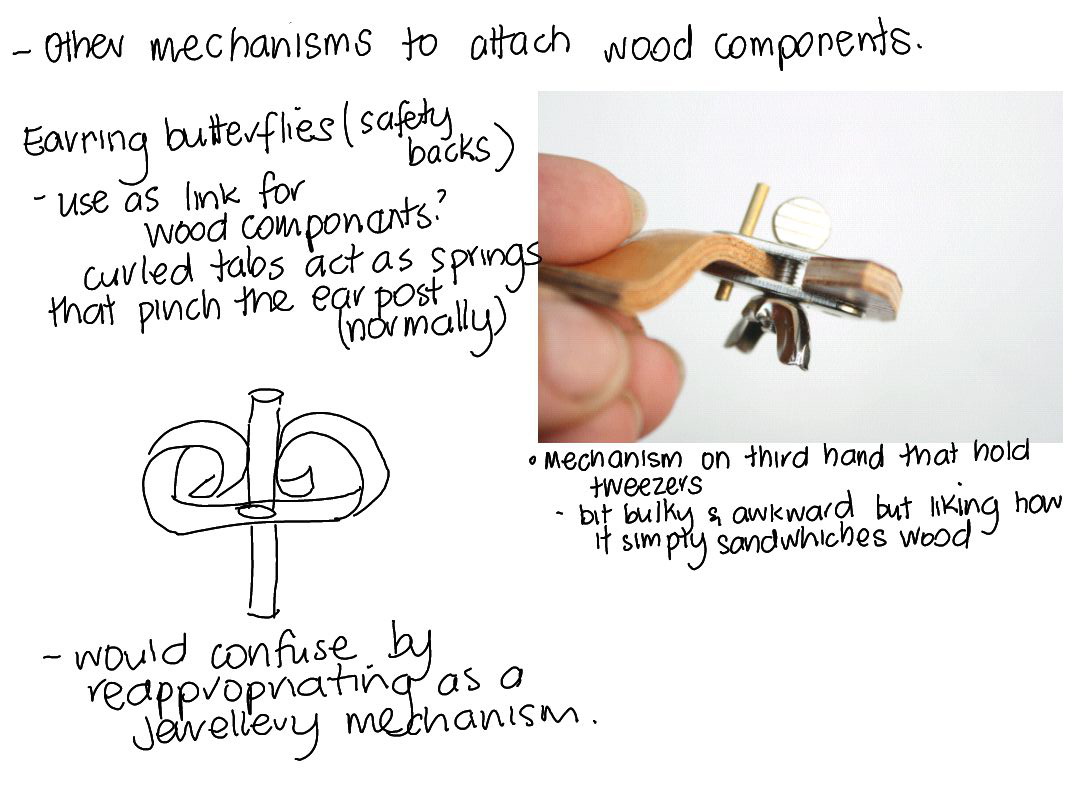 - Other mechanisms to attach wood components.
Earring butterflies (safety
backs)
- use as link for
wood componants?
curled tabs act as springs
that pinch the ear post
(normally)
• Mechanism on third hand that hold
tweezers
- bit bulky & awkward but liking how
it simply sandwhiches wood
- would confuse by
reappropriating as a
jewellery mechanism.